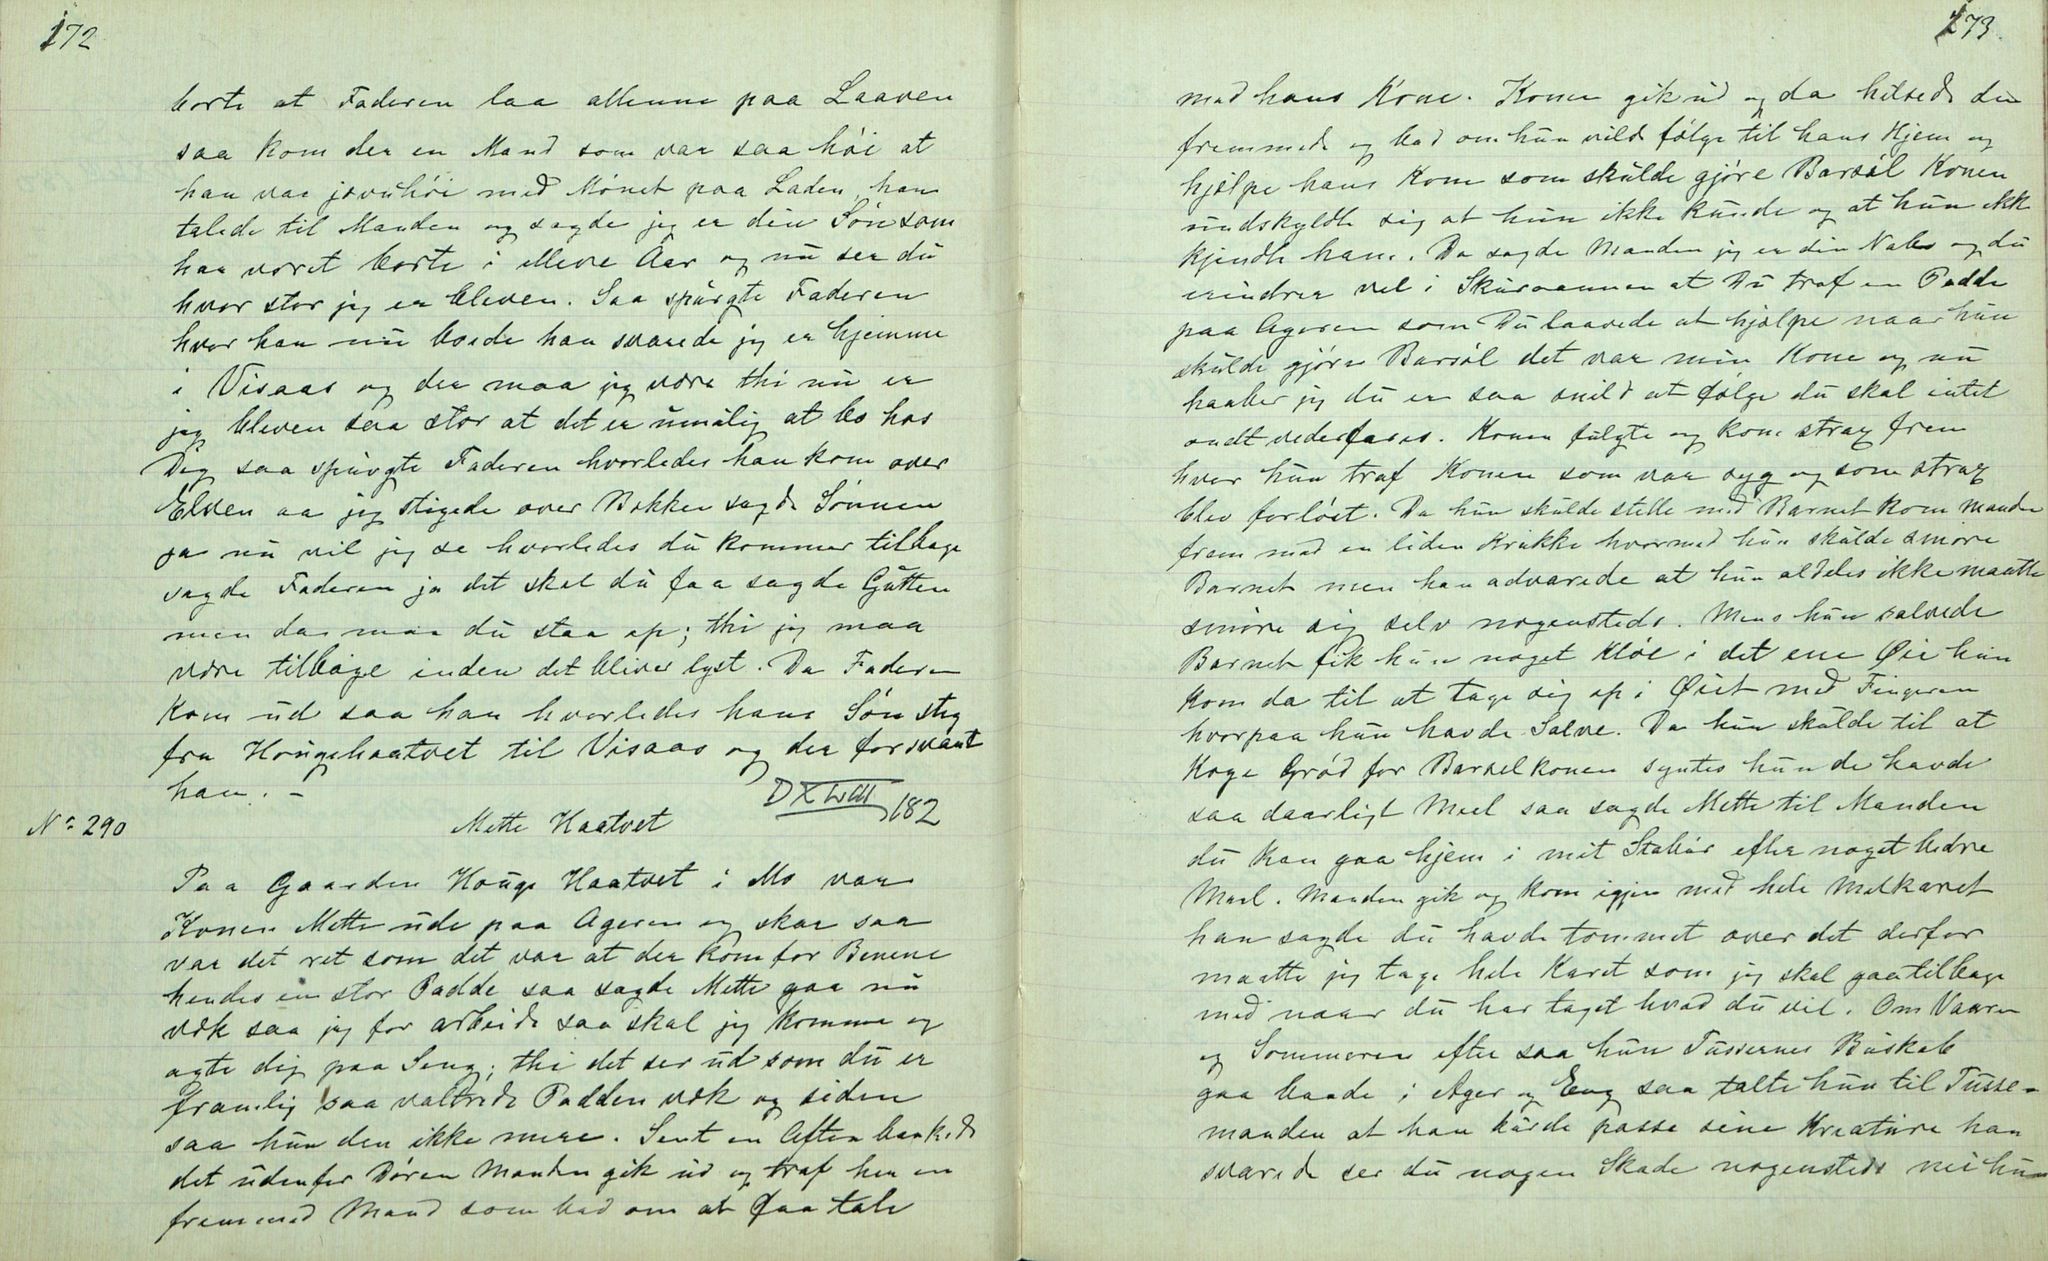 172
borte at Faderen laa allene paa Laaven
saa kom der en Mand som var saa høi at
han var jevnhøi med Mønet paa Laden, han
talede til Manden og sagde jeg er din Søn som
har været borte i elleve Aar og nu ser du
hvor stor jeg er bleven. Saa spurgte Faderen
hvor han nu boede han svarede jeg er hjemme
i Visaas og der maa jeg være thi nu er
jeg bleven saa stor at det er umulig at bo hos
Dig saa spurgte Faderen hvorledes han kom over
Elven aa jeg stigede over Bækken sagde Sønnen
ja nu vil jeg se hvorledes du kommer tilbage
sagde Faderen ja det skal du faa sagde Gutten
men da maa du staa op; thi jeg maa
være tilbage inden det bliver lyst. Da Faderen
kom ud saa han hvorledes hans Søn steg
fra Hougehaatvet til Visaas og der forsvant
han. –
182
No 290
Mette Haatvet
Paa Gaarden Houge Haatvet i Mo var
Konen Mette ude paa Ageren og skar saa
var det ret som det var at der kom for Benene
hendes en stor Padde saa sagde Mette gaa nu
væk saa jeg for arbeide saa skal jeg komme og
agte dig paa Seng; thi det ser ud som du er
framlig saa valtrede Padden væk og siden
saa hun den ikke mere. Sent en Aften bankede
det udenfor Døren Manden gik ud og traf her en
fremmed Mand som bad om at faa tale
173.
med hans Kone. Konen gik ud og da hilsede den
fremmede og bad om hun vilde følge til hans Hjem og
hjælpe hans Kone som skulde gjøre Barsøl Konen
undskyldte sig at hun ikke kunde og at hun ikke
kjendte ham. Da sagde Manden jeg er din Nabo og du
erindrer vel i Skuraannen at Du traf en Padde
paa Ageren som Du lavede at hjælpe naar hun
skulde gjøre Barsøl det var min Kone og nu
haaber jeg du er saa snild at følge du skal intet
ondt vederfares. Konen fulgte og kom strax frem
hvor hun traf Konen som var syg og som strax
blev forløst. Da hun skulde stelle med Barnet kom Manden
frem med en liden Krukke hvormed hun skulde smøre
Barnet men han advarede at hun aldeles ikke maatte
smøre sig selv nogensteds. Mens hun salvede
Barnet fik hun noget Kløe i det ene Øie hun
kom da til at tage sig op i Øiet med Fingeren
hvorpaa hun havde Salve. Da hun skulde til at
koge Grød for Barselkonen syntes hun de havde
saa daarligt Meel saa sagde Mette til Manden
du kan gaa hjem i mit Stabur efter noget bedre
Meel. Manden gik og kom igjen med hele Melkaret
han sagde du havde tommet over det derfor
maatte jeg tage hele Karet som jeg skal gaa tilbage
med naar du har taget hvad du vil. Om Vaaren
og Sommeren efter saa hun Tussernes Buskab
gaa baade i Ager og Eng saa talte hun til Tusse-
manden at han burde passe sine Kreature han
svarede ser du nogen Skade nogensteds nei hun